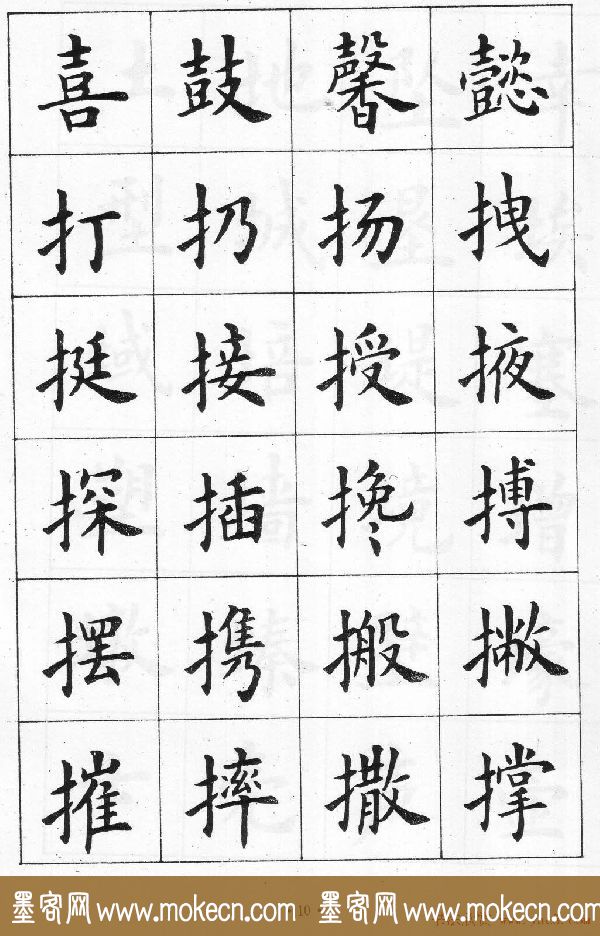 喜 鼓 馨 懿
打 扔 扬 拽
挺 接 授 掖
探 插 搀 搏
摆 携 搬 撇
摧 摔 撒 撑
墨客网 www.mokecn.com 10 墨客网 www.mokecn.com